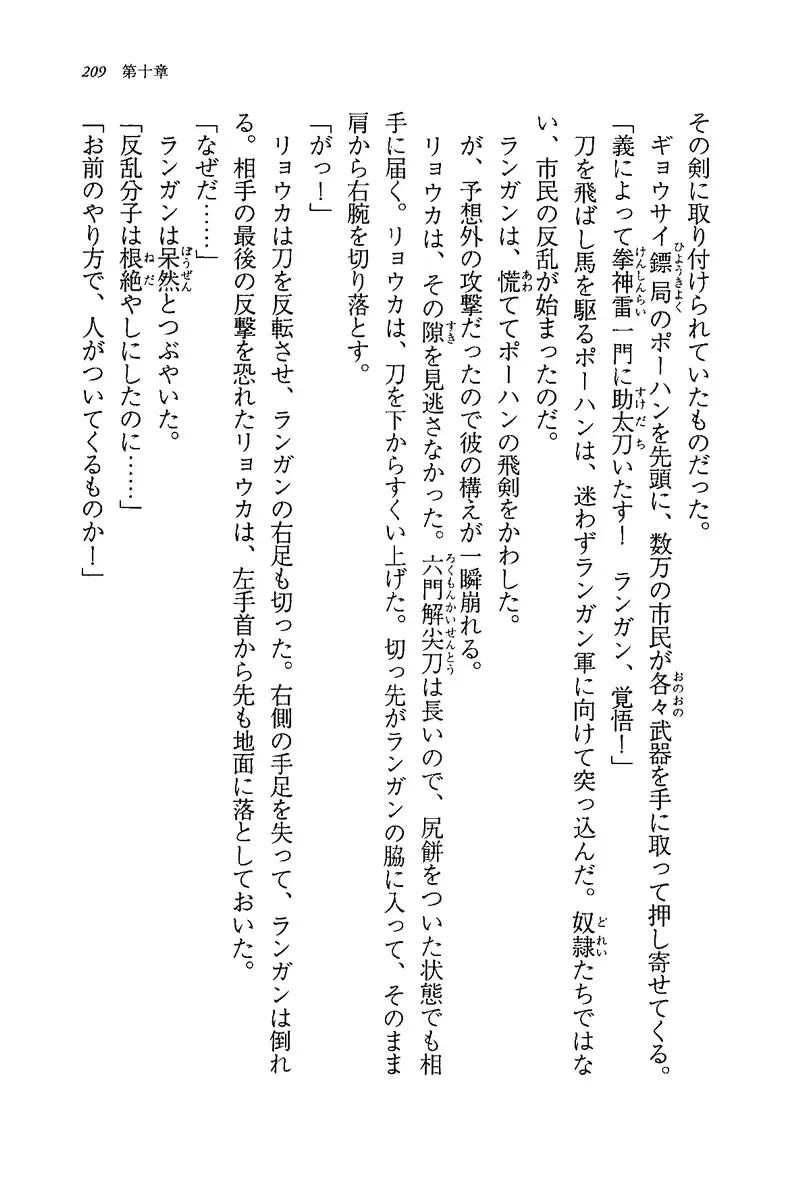 209 第十章
その剣に取り付けられていたものだった。
ギョウサイ鏢局のポーハンを先頭に、数万の市民が各々武器を手に取って押し寄せてくる。
「義によって拳神雷一門に助太刀いたす！　ランガン、覚悟！」
刀を飛ばし馬を駆るポーハンは、迷わずランガン軍に向けて突っ込んだ。奴隷たちではな
い、市民の反乱が始まったのだ。
ランガンは、慌ててポーハンの飛剣をかわした。
が、予想外の攻撃だったので彼の構えが一瞬崩れる。
リョウカは、その隙を見逃さなかった。六門解尖刀は長いので、尻餅をついた状態でも相
手に届く。リョウカは、刀を下からすくい上げた。切っ先がランガンの脇に入って、そのまま
肩から右腕を切り落とす。
「がっ！」
リョウカは刀を反転させ、ランガンの右足も切った。右側の手足を失って、ランガンは倒れ
る。相手の最後の反撃を恐れたリョウカは、左手首から先も地面に落としておいた。
「なぜだ……」
ランガンは呆然とつぶやいた。
「反乱分子は根絶やしにしたのに……」
「お前のやり方で、人がついてくるものか！」